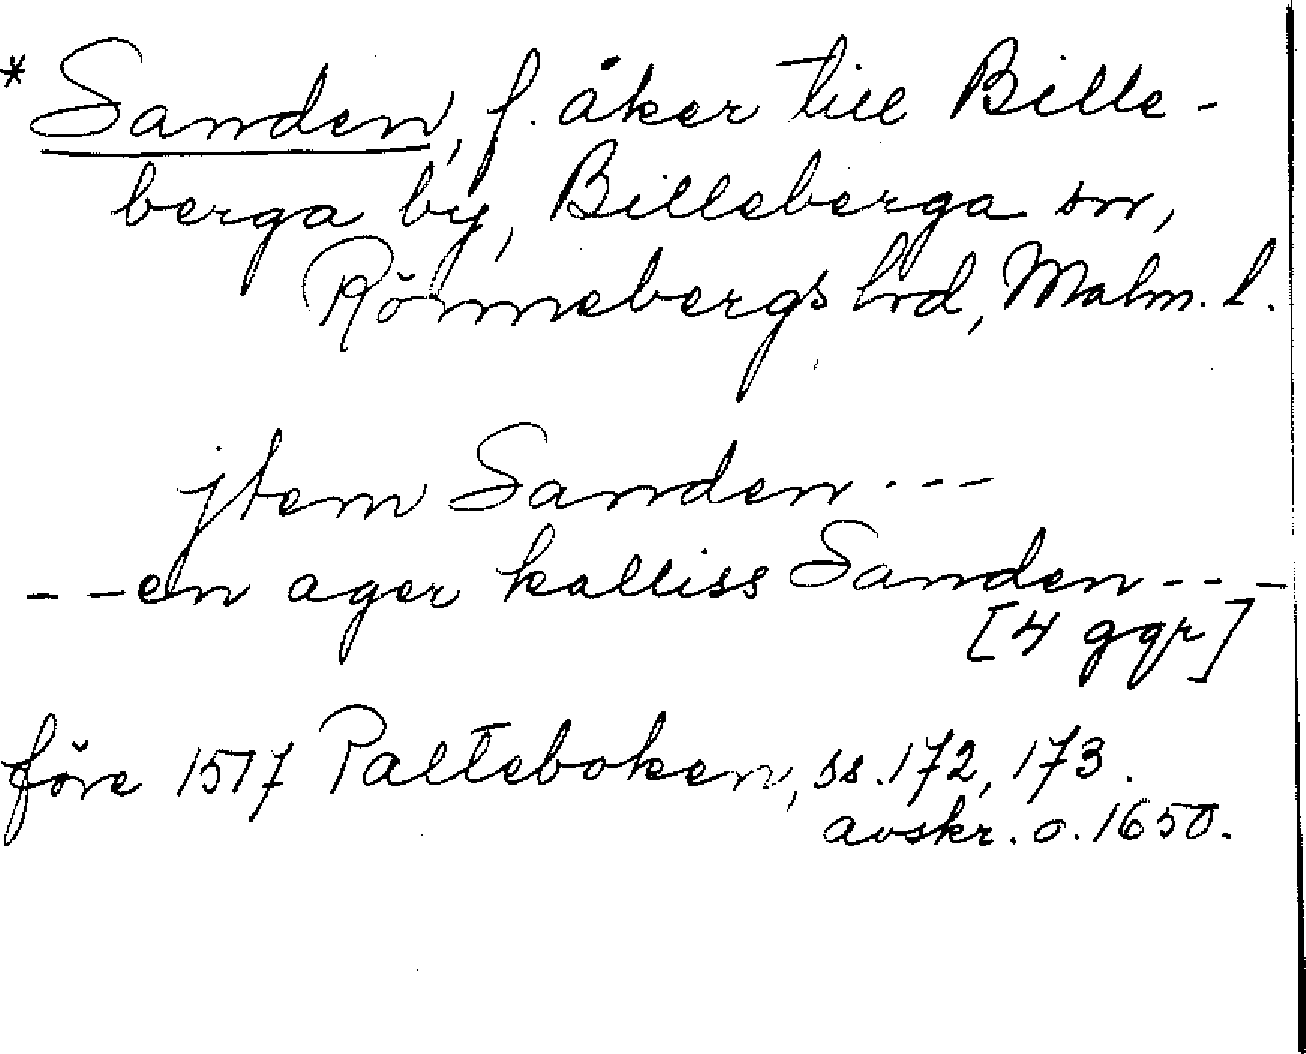 *Sanden, f. åker till Bille-
berga by, Billeberga sn,
Rönnebergs hrd, Malm. l.
jtem Sanden ---
--en ager kalliss Sanden ---
[4 ggr]
före 1517 Palteboken, ss. 172, 173.
avskr. o. 1650.